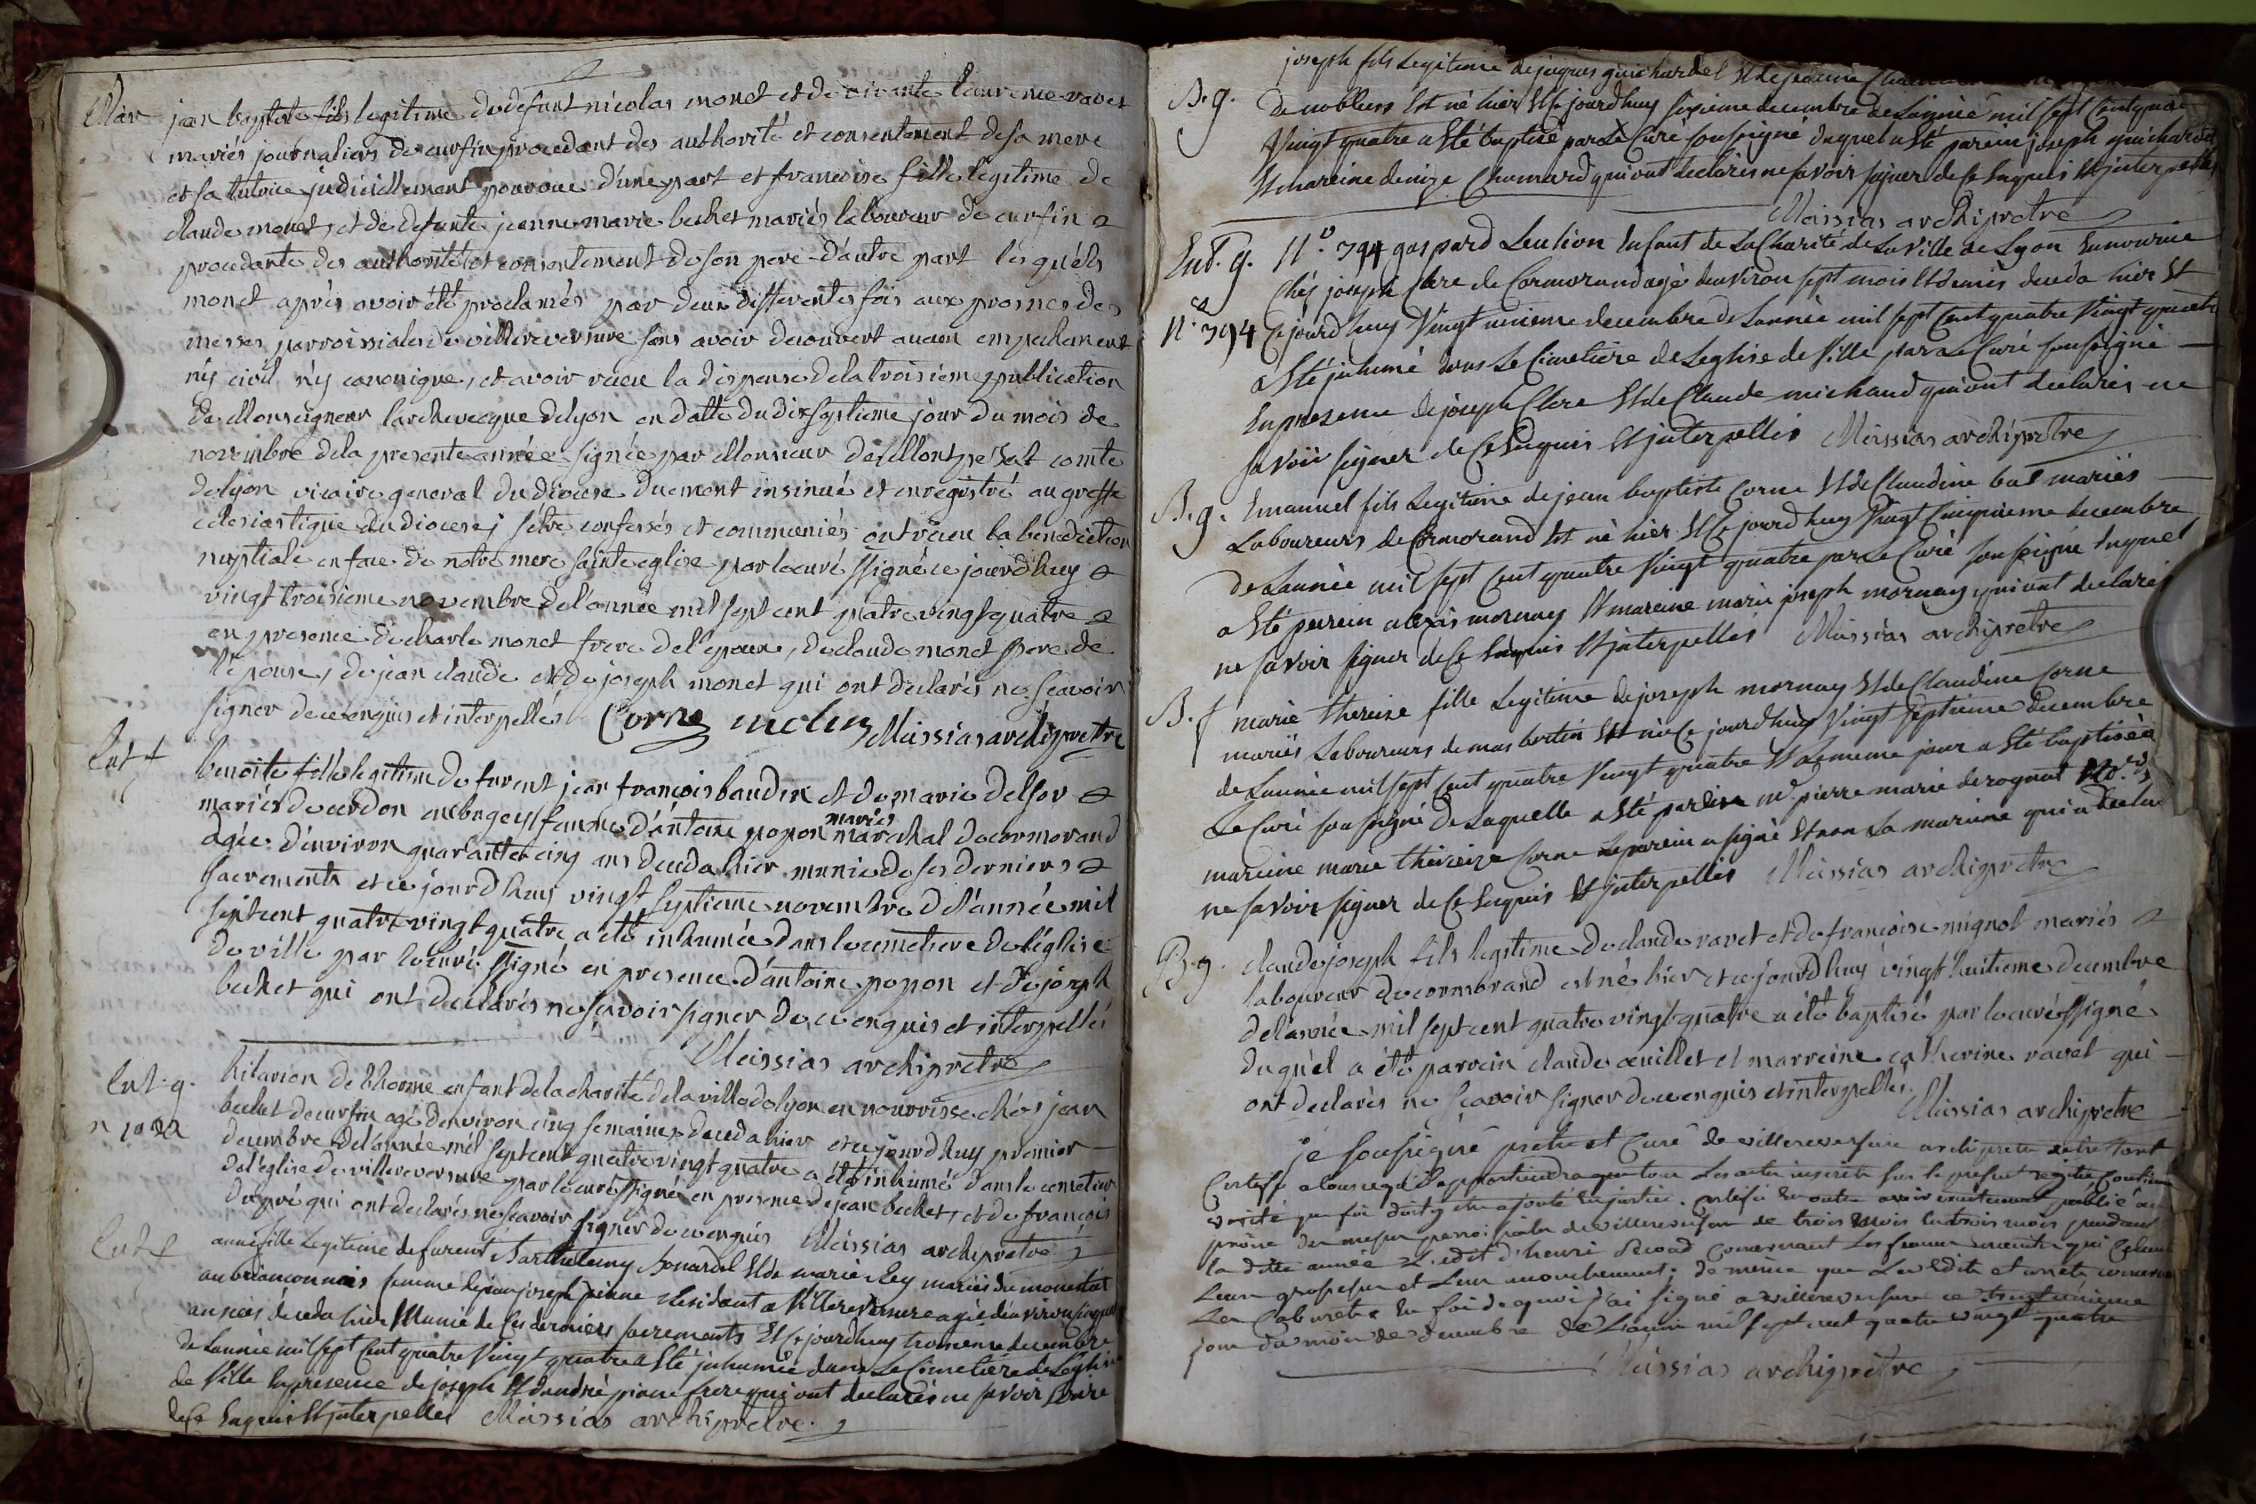 Mar
jean baptiste fils legitime de defunt nicolas monet et de vivante laurence ravet
mariés journaliers de curfin procedant des authorité et consentement de sa mere
et sa tutrice judiciellement pourvue d'une part et francoise fille legitime de
claude monet, et de defunte jeanne marie bechet mariés laboureur de curfin
procedante des authorité et consentement de son pere d'autre part lesquels
monet aprés avoir été proclamés par deux differentes fois aux prosnes des
messes parroissiales de villereversure sans avoir decouvert aucun empechement
ny civil ny canonique, et avoir recu la dispense de la troisieme publication
de Monseigneur l'archeveque de lyon en datte du dix septieme jour du mois de
novembre de la presente année signée par Monsieur de Montpezat comte
de lyon vicaire general du diocese duement insinué et enregistré au greffe
eclesiastique du diocese, s'être confessés et communiés ont recu la benediction
nuptiale en face de notre mere sainte eglise par le curé ssigné ce jourd'huy
vingt troisieme novembre de l'année mil sept cent quatre vingt quatre
en presence de charle monet frere de l'epoux, de claude monet pere de
l'epouse, de jean claude et de joseph monet qui ont declarés ne scavoir
signer de ce enquis et interpellés Corne Messias archipretre
Ent f
benoite fille legitime de furent jean francois baudin et de marie delfor
mariés de cerdon en bugey femme d'antoine popon
mariés
marechal de cormorand
agée d'environ quarante cinq ans deceda hier munie de ses derniers
sacrements et ce jourd'huy vingt septieme novembre de l'année mil
sept cent quatre vingt quatre a été inhumée dans le cemetiere de l'eglise
de ville par le curé ssigné en presence d'antoine popon et de joseph
bechet qui ont declarés ne scavoir signer de ce enquis et interpellés
Messias archipretre
Ent. g.
n 1022
hilarion de lhorme enfant de la charité de la ville de lyon en nourrisse chés jean
bechet de curfin agé d'environ cinq semaines deceda hier et ce jourd'huy premier
decembre de l'année mil sept cent quatre vingt quatre a été inhumé dans le cemetiere
de l'eglise de villereversure par le curé ssigné en presence de jean bechet, et de francois
dupré qui ont declarés ne scavoir signer de ce enquis Messias archipretre
Ent f
anne fille Legitime de furent Barthelemy Bonardel et de marie Rey mariés du monestier
au brianconnais femme de jean joseph pionne Residant a Villereversure agée d'environ
années deceda hier Munie de ses derniers sacrements et ce jourd'huy troisieme decembre
de L'année mil sept Cent quatre Vingt quatre a été inhumée dans Le Cimetiere de L'eglise
de Ville en presence de joseph et d'andré pionne frere qui ont declarés ne savoir
de Ce Enquis et interpellés Messias archipretre.
B. g.
joseph fils Legitime de jaques guichardet et de
de nobliers est né hier et Ce jourd'huy sixieme decembre de L'année mil sept Cent quatre
Vingt quatre a été baptisé par Le Curé soussigné duquel a été parein joseph guichardet
et mareine denise Chumard qui ont declarés ne savoir signer de Ce Enquis et interpellés
Messias archipretre
Ent. g.
N.o 394
N.o 394 gaspard Leulion Enfant de La Charité de La Ville de Lyon En nourrice
Chés joseph Clere de Cormorand agé d'environ sept mois et demis deceda hier et
Ce jourd'huy Vingt unieme decembre de L'année mil sept Cent quatre Vingt quatre
a été inhumé dans Le Cimetiere de L'eglise de Ville par Le Curé soussigné
En presence de joseph Clere et de Claude michaud qui ont declarés ne
savoir signer de Ce Enquis et interpellés Messias archipretre
B. g.
Emanuel fils Legitime de jean baptiste Corne et de Claudine bal mariés
Laboureurs de Cormorand est né hier et Ce jourd'huy Vingt Cinquieme decembre
de L'année mil sept Cent quatre Vingt quatre par Le Curé soussigné duquel
a été parein alexis mornay et mareine marie joseph mornay qui ont declarés
ne savoir signer de Ce Enquis et interpellés Messias archipretre
B. f
marie thereise fille Legitime de joseph mornay et de Claudine Corne
mariés Laboureurs de mas bertin est née Ce jourd'huy Vingt septieme decembre
de L'année mil sept Cent quatre Vingt quatre et Le meme jour a été baptisée par
Le Curé soussigné de Laquelle a été parein m.e pierre marie derognat et
mareine marie théreise Corne Le parein a signé et non La mareine qui a declaré
ne savoir signer de Ce Enquis et interpellés Messias archipretre
B. g.
claude joseph fils legitime de claude ravet et de francoise mignot mariés
laboureur de cormorand est né hier et ce jourd'huy vingt huitieme decembre
de l'année mil sept cent quatre vingt quatre a été baptisé par le curé ssigné
duquel a été parrein claude œuillet et marreine catherine ravet qui
ont declarés ne scavoir signer de ce enquis et interpellés. Messias archipretre
je soussigné pretre et Curé de villereversure archipretre de
Certifie a tous ceux qu'il appartiendra que tous Les actes inscrits sur le present registre Contiennent
verité que foi doit y etre ajoutée en justice. certifie En outre avoir exactement publié au
prône des messes parroissiales de villereversure de trois Mois En trois mois pendant
la ditte année L'edit d'henri Second Concernant Les femmes enceintes qui Celent
Leur grossesse et Leur accouchement. de meme que Les Edits et arrets concernant
Les Cabarets En foi de quoi j'ai signé a villereversure ce trente unieme
jour du mois de decembre de L'année mil sept cent quatre vingt quatre
Messias archipretre